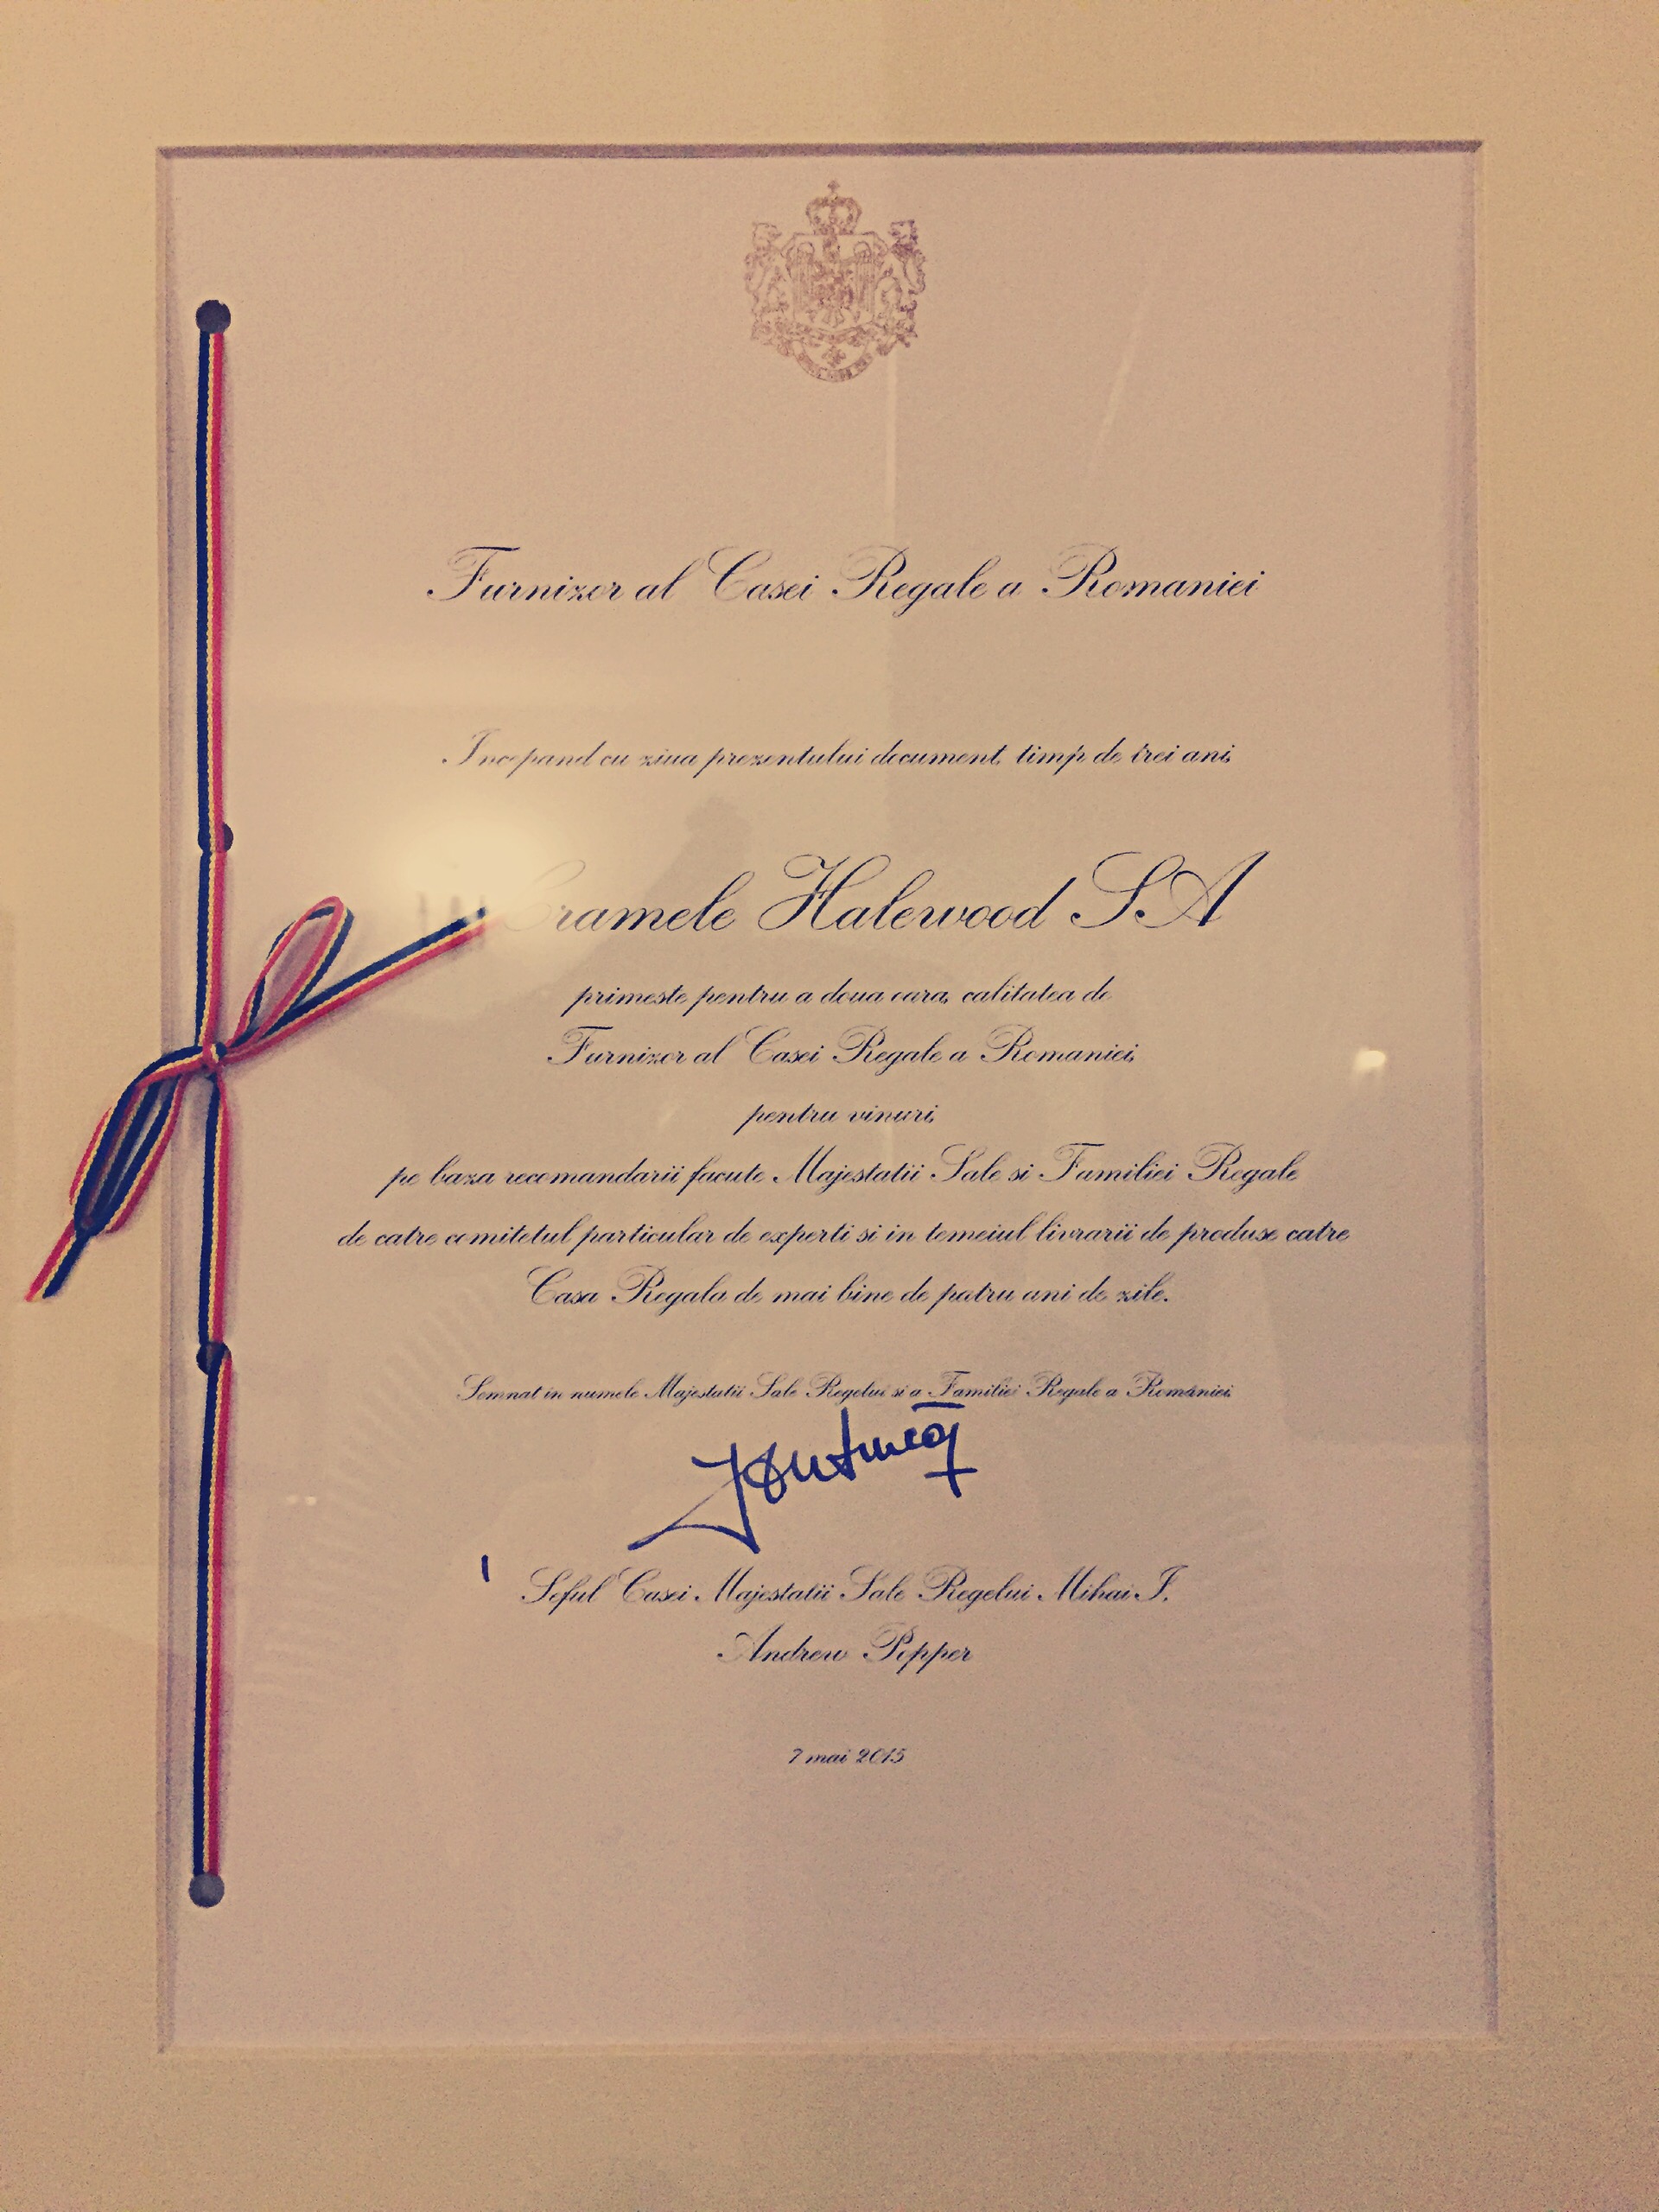 Furnizor al Casei Regale a Romaniei
Incepand cu ziua prezentului document, timp de trei ani,
Cramele Halewood SA
primeste pentru a doua oara, calitatea de
Furnizor al Casei Regale a Romaniei,
pentru vinuri,
pe baza recomandarii facute Majestatii Sale si Familiei Regale
de catre comitetul particular de experti si in temeiul livrarii de produse catre
Casa Regala de mai bine de patru ani de zile.
Semnat in numele Majestatii Sale Regelui si a Familiei Regale a României,
Seful Casei Majestatii Sale Regelui Mihai I,
Andrew Popper
7 mai 2015